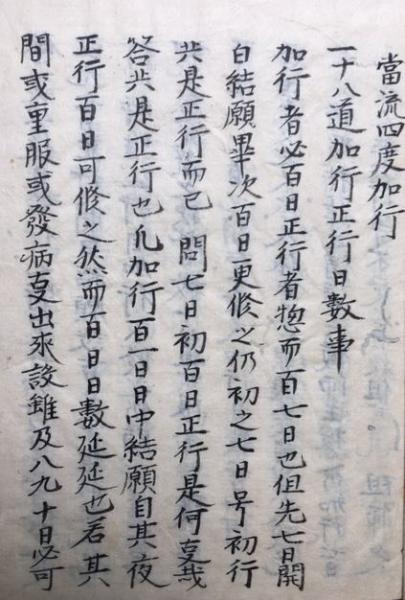 當流四度加行
一十八道加行正行日數事
加行者必百日正行者惣而百七日也但先七日開
白結願畢次百日更修之仍初之七日号初行
共是正行而已 問七日初百日正行是何㕝哉
答共是正行也凡加行百一日日中結願自其夜
正行百日可修之然而百日日數延延也若其
間或重服或發病㕝出來設雖及八九十日必可